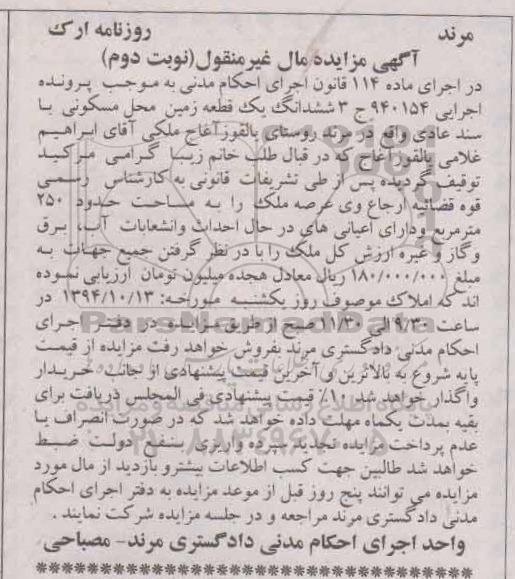 مرند روزنامه ارک
آگهی مزایده مال غیرمنقول(نوبت دوم)
در اجرای ماده ۱۱۴ قانون اجرای احکام مدنی به موجب پرونده
اجرایی ۹۴۰۱۵۴ ج ۳ ششدانگ یک قطعه زمین محل مسکونی با
سند عادی واقع در مرند روستای یالقوزآغاج ملکی آقای ابراهیم
غلامی یالقوزآغاج که در قبال طلب خانم زیبا گرامی مرکید
توقیف گردیده پس از طی تشریفات قانونی به کارشناس رسمی
قوه قضائیه ارجاع وی عرصه ملک را به مساحت حدود ۲۵۰
مترمربع ودارای اعیانی های در حال احداث وانشعابات آب، برق
وگاز و غیره ارزش کل ملک را با در نظر گرفتن جمیع جهات به
مبلغ ۱۸۰/۰۰۰/۰۰۰ ریال معادل هجده میلیون تومان ارزیابی نموده
اند که املاک موصوف روز یکشنبه مورخه: ۱۳۹۴/۱۰/۱۳ در
ساعت ۹/۳۰ الی ۱۱/۳۰ صبح از طریق مزایده در دفتر اجرای
احکام مدنی دادگستری مرند بفروش خواهد رفت مزایده از قیمت
پایه شروع به بالاترین و آخرین قیمت پیشنهادی از جانب خریدار
واگذار خواهد شد ۱۰٪ قیمت پیشنهادی فی المجلس دریافت برای
بقیه بمدت یکماه مهلت داده خواهد شد که در صورت انصراف یا
عدم پرداخت مزایده تجدید سپرده واریزی بنفع دولت ضبط
خواهد شد طالبین جهت کسب اطلاعات بیشترو بازدید از مال مورد
مزایده می توانند پنج روز قبل از موعد مزایده به دفتر اجرای احکام
مدنی دادگستری مرند مراجعه و در جلسه مزایده شرکت نمایند .
واحد اجرای احکام مدنی دادگستری مرند- مصباحی
ParsNamadData